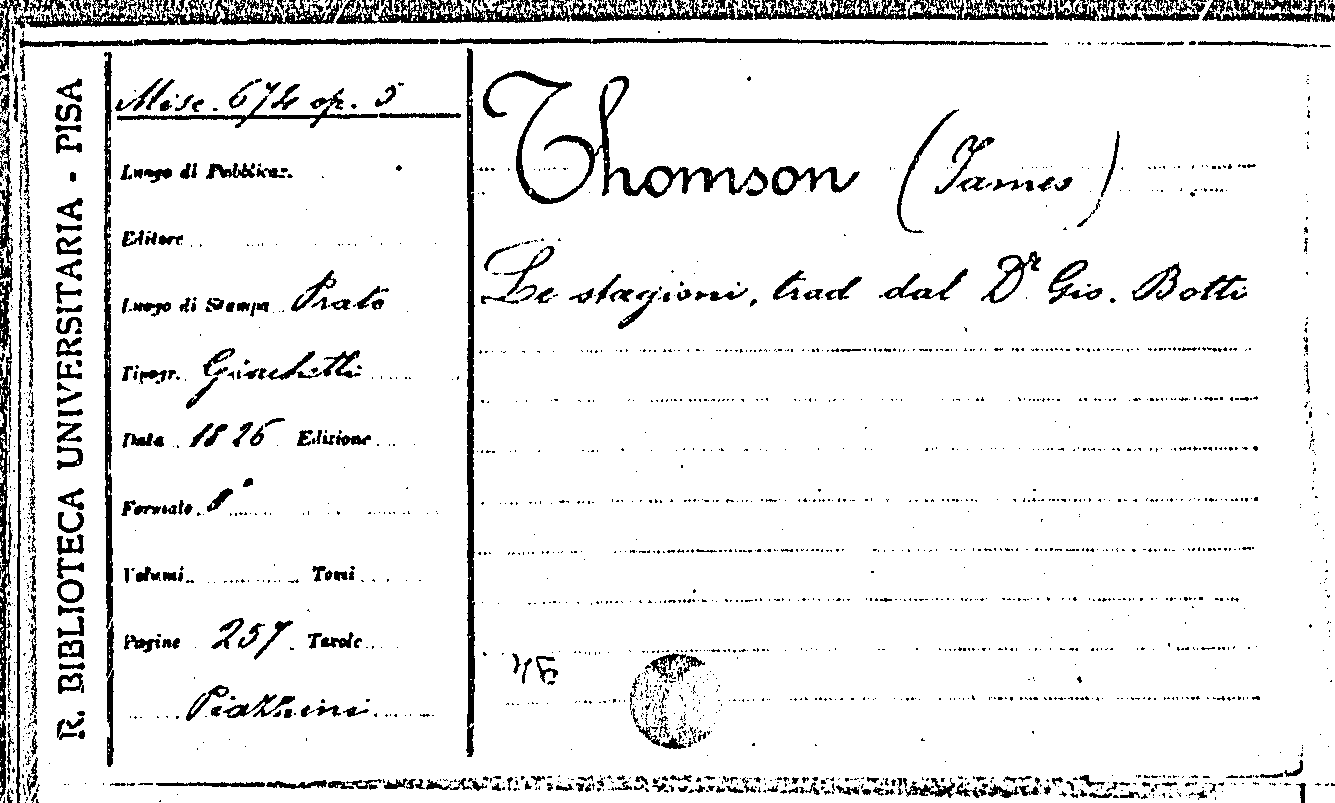 R. BIBLIOTECA UNIVERSITARIA - PISA
Misc. 674 op. 5
Luogo di Pubblicaz.
Editore
Luogo di Stampa Prato
Tipogr. Giachetti
Data 1826 Edizione
Formato 8°
Volumi Tomi
Pagine 257 Tavole
Piazzini
Thomson (James)
Le stagioni, trad dal Dr Gio. Botti